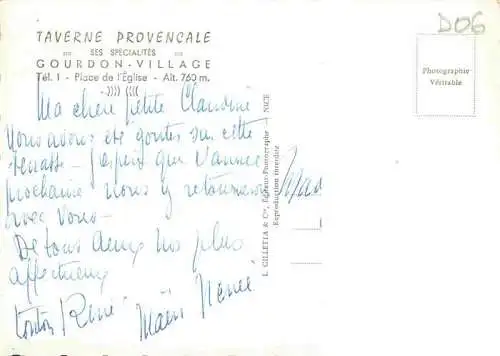 D06
TAVERNE PROVENCALE
SES SPÉCIALITÉS
GOURDON-VILLAGE
Tél. 1 - Place de l'Église - Alt. 760 m.
Photographie
Véritable
Ma chère petite Claudine
Nous avons été goûter sur cette
terrasse - J'espère que l'année
prochaine nous y retournerons
avec vous -
De tous deux nos plus
affectueux
tonton René
L. GILLETTA & Cie, Éditeur-Photographe - NICE
Reproduction interdite